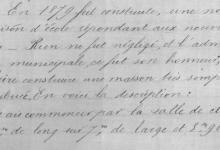 En 1879 fut construite, une no
ison d'école répondant aux nouv
Rien ne fut négligé, et l'adm
municipale, ce fut son honneur,
ire construire une maison très simp
En voici la description:
ais commencer par la salle de cl
de long sur 7m de large et